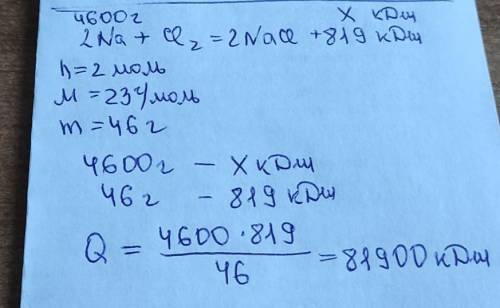 4600г х кДж
2Na + Cl₂ = 2NaCl + 819 кДж
n = 2 моль
M = 23 г/моль
m = 46 г
4600г – х кДж
46г – 819 кДж
Q = 4600 · 819 / 46 = 81900 кДж